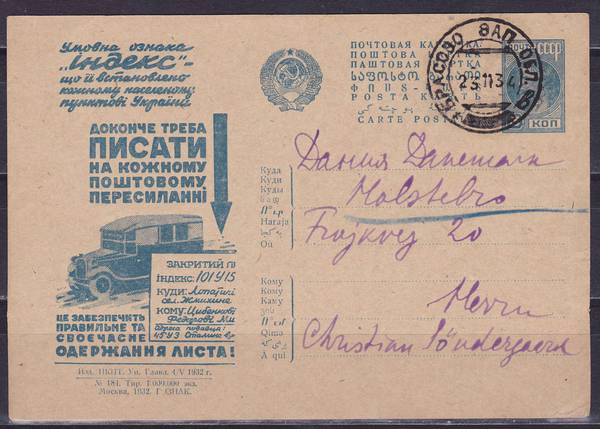 Умовна ознака
„індекс“-
що її встановлено
кожному населеному
пунктові України
ДОКОНЧЕ ТРЕБА
ПИСАТИ
НА КОЖНОМУ
ПОШТОВОМУ
ПЕРЕСИЛАННІ
ЗАКРИТИЙ
ІНДЕКС: 101У15
КУДИ:
сел.
КОМУ: Цибенкові
Федорові
Адреса подавця:
45У3 Сталине
ЦЕ ЗАБЕЗПЕЧИТЬ
ПРАВИЛЬНЕ ТА
СВОЄЧАСНЕ
ОДЕРЖАННЯ ЛИСТА!
Изд. НКПТ. Уп. Глава. 4/V 1932 г.
№ 184. Тир. 1.000.000 экз.
Москва, 1932. ГОЗНАК.
ПОЧТОВАЯ КАРТОЧКА
ПОШТОВА КАРТКА
ПАШТОВАЯ КАРТКА
POSTA
CARTE POSTALE
ПОЧТА СССР
КОП
БРАСОВО ЗАП. ОБЛ.
23 11 34
Куда
Куди
Куды
Haraja
Où
Кому
Кому
Каму
Qima
A qui
Дания Danemark
Holstebro
Frøjkvej 20
Herrn
Christian Söndergaard